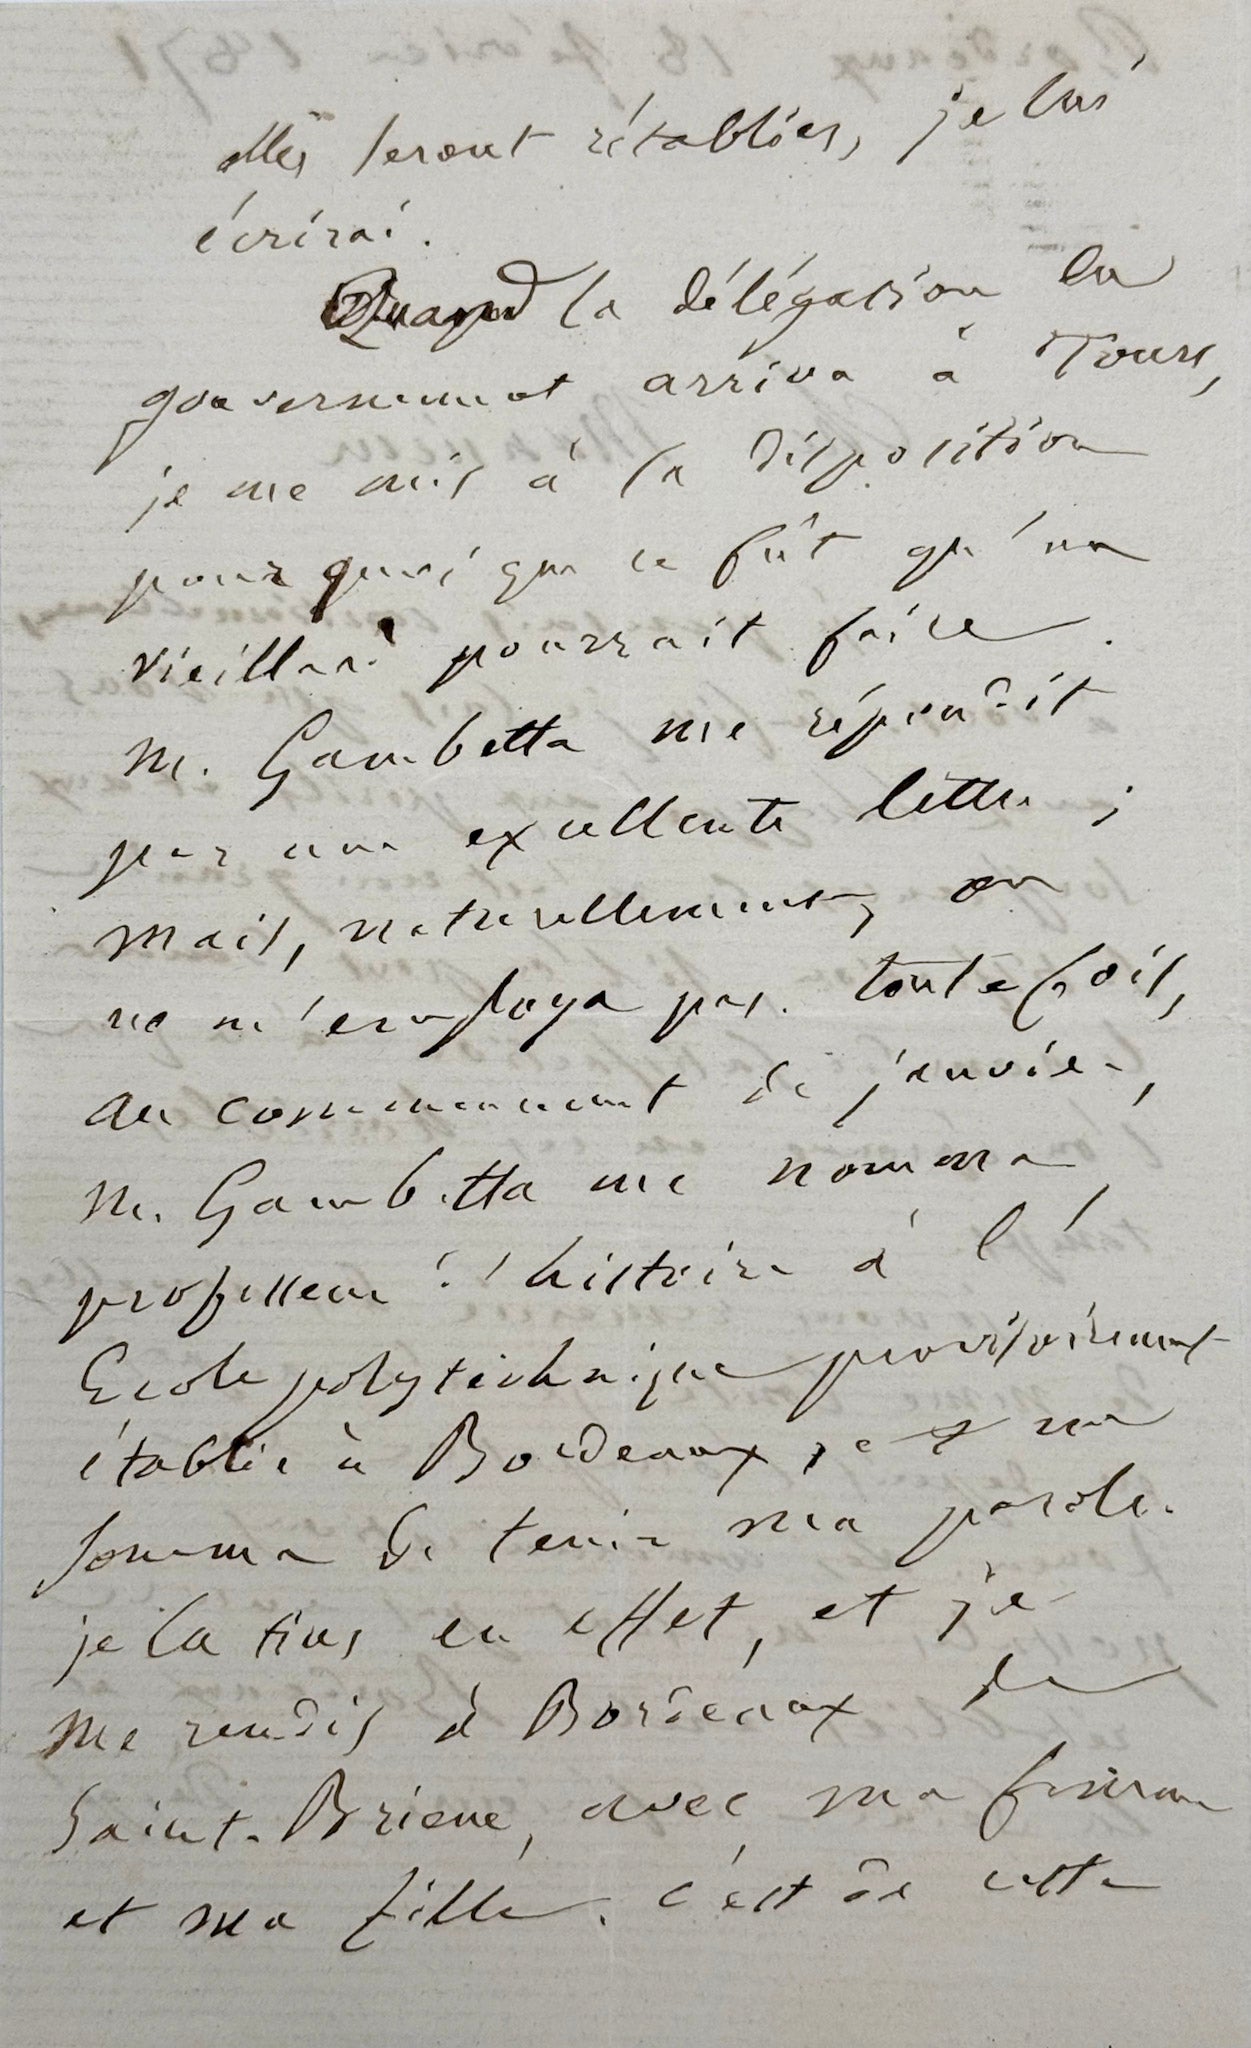 elles seront rétablies, je lui
écrirai.
Quand la délégation du
gouvernement arriva à Tours,
je me mis à sa disposition
pour quoi que ce fût qu'un
vieillard pourrait faire.
M. Gambetta me répondit
par une excellente lettre ;
mais, naturellement, on
ne m'employa pas. toutefois,
au commencement de janvier,
M. Gambetta me nomma
professeur d'histoire à l'
Ecole polytechnique provisoirement
établie à Bordeaux, et me
somma de tenir ma parole.
je la tins en effet, et je
me rendis à Bordeaux de
Saint-Brieuc, avec ma femme
et ma fille. c'est de cette